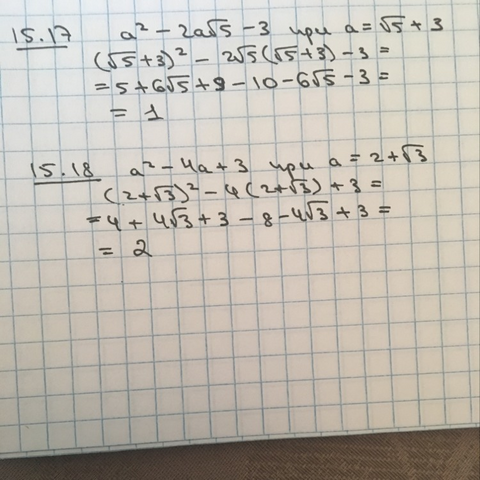 15.17 a² - 2a√5 - 3 при a = √5 + 3
(√5+3)² - 2√5(√5+3) - 3 =
= 5 + 6√5 + 9 - 10 - 6√5 - 3 =
= 1
15.18 a² - 4a + 3 при a = 2 + √3
(2+√3)² - 4(2+√3) + 3 =
= 4 + 4√3 + 3 - 8 - 4√3 + 3 =
= 2